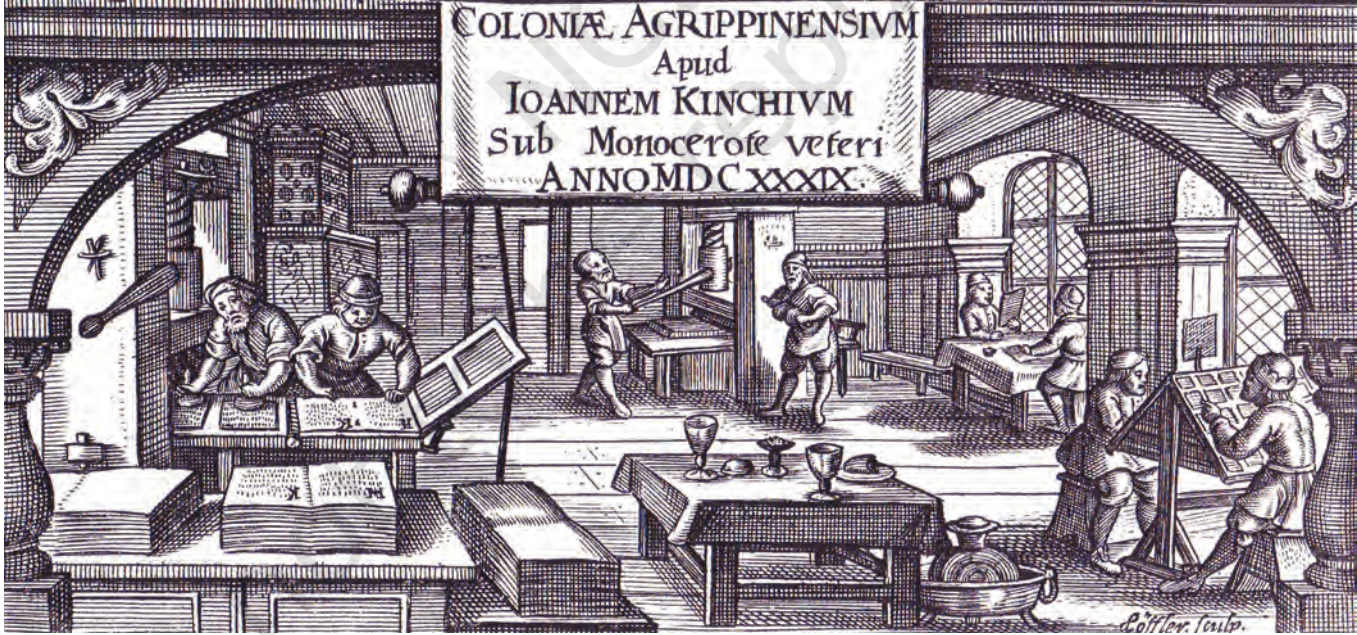 COLONIÆ AGRIPPINENSIVM
Apud
IOANNEM KINCHIVM
Sub Monocerote veteri
ANNO MDCXXXIX.
Löffler sculp.